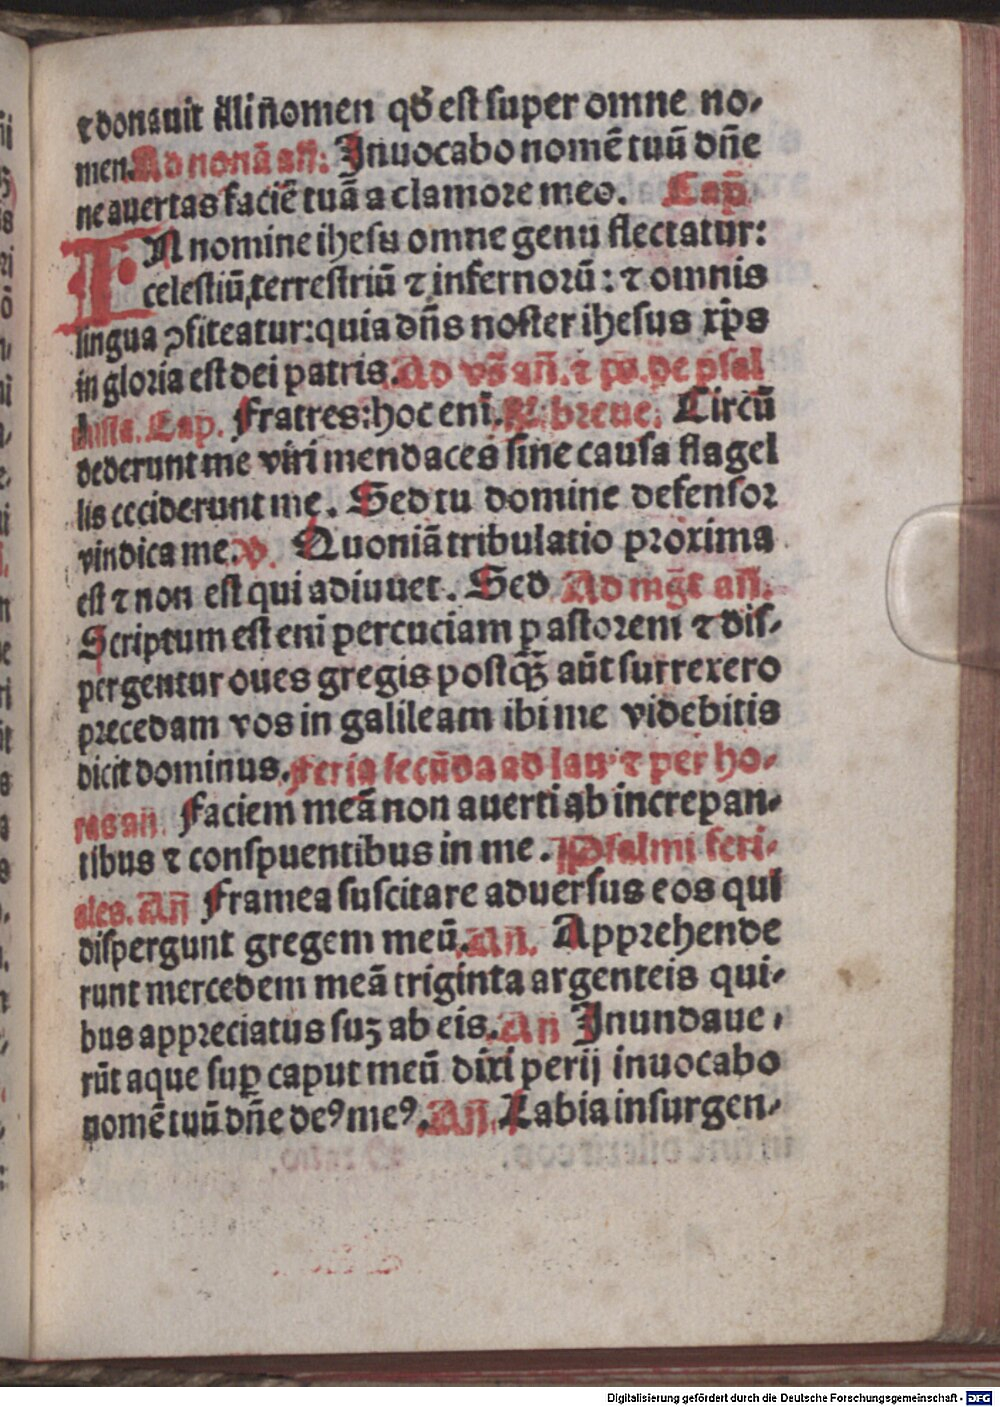 ⁊ donauit illi ñomen qđ est super omne no⸗
men. Ad nonā an̄: Inuocabo nomē tuū dñe
ne auertas faciē tuā a clamore meo. Cap̄
IN nomine ihesu omne genu flectatur:
celestiū, terrestriū ⁊ infernorū: ⁊ omnis
lingua ꝯfiteatur: quia dñs noster ihesus xp̄s
in gloria est dei patris. Ad vs̄ an̄. ⁊ ps̄. de psal
mista. Cap. Fratres: hoc enī. R. breue: Circū
dederunt me viri mendaces sine causa flagel
lis ceciderunt me. Sed tu domine defensor
vindica me. v. Quoniā tribulatio proxima
est ⁊ non est qui adiuuet. Sed Ad mḡt an̄.
Scriptum est enī percuciam pastorem ⁊ dis⸗
pergentur oues gregis postq̄ aūt surrexero
precedam vos in galileam ibi me videbitis
dicit dominus. Feria secūda ad lau ⁊ per ho⸗
ras an. Faciem meā non auerti ab increpan⸗
tibus ⁊ conspuentibus in me. Psalmi feri⸗
ales. An̄ Framea suscitare aduersus eos qui
dispergunt gregem meū. An. Apprehende
runt mercedem meā triginta argenteis qui⸗
bus appreciatus suꝫ ab eis. An Inundaue⸗
rūt aque suꝑ caput meū dixi perij inuocabo
nomē tuū dñe deꝰ meꝰ. An̄. Labia insurgen⸗
Digitalisierung gefördert durch die Deutsche Forschungsgemeinschaft - DFG